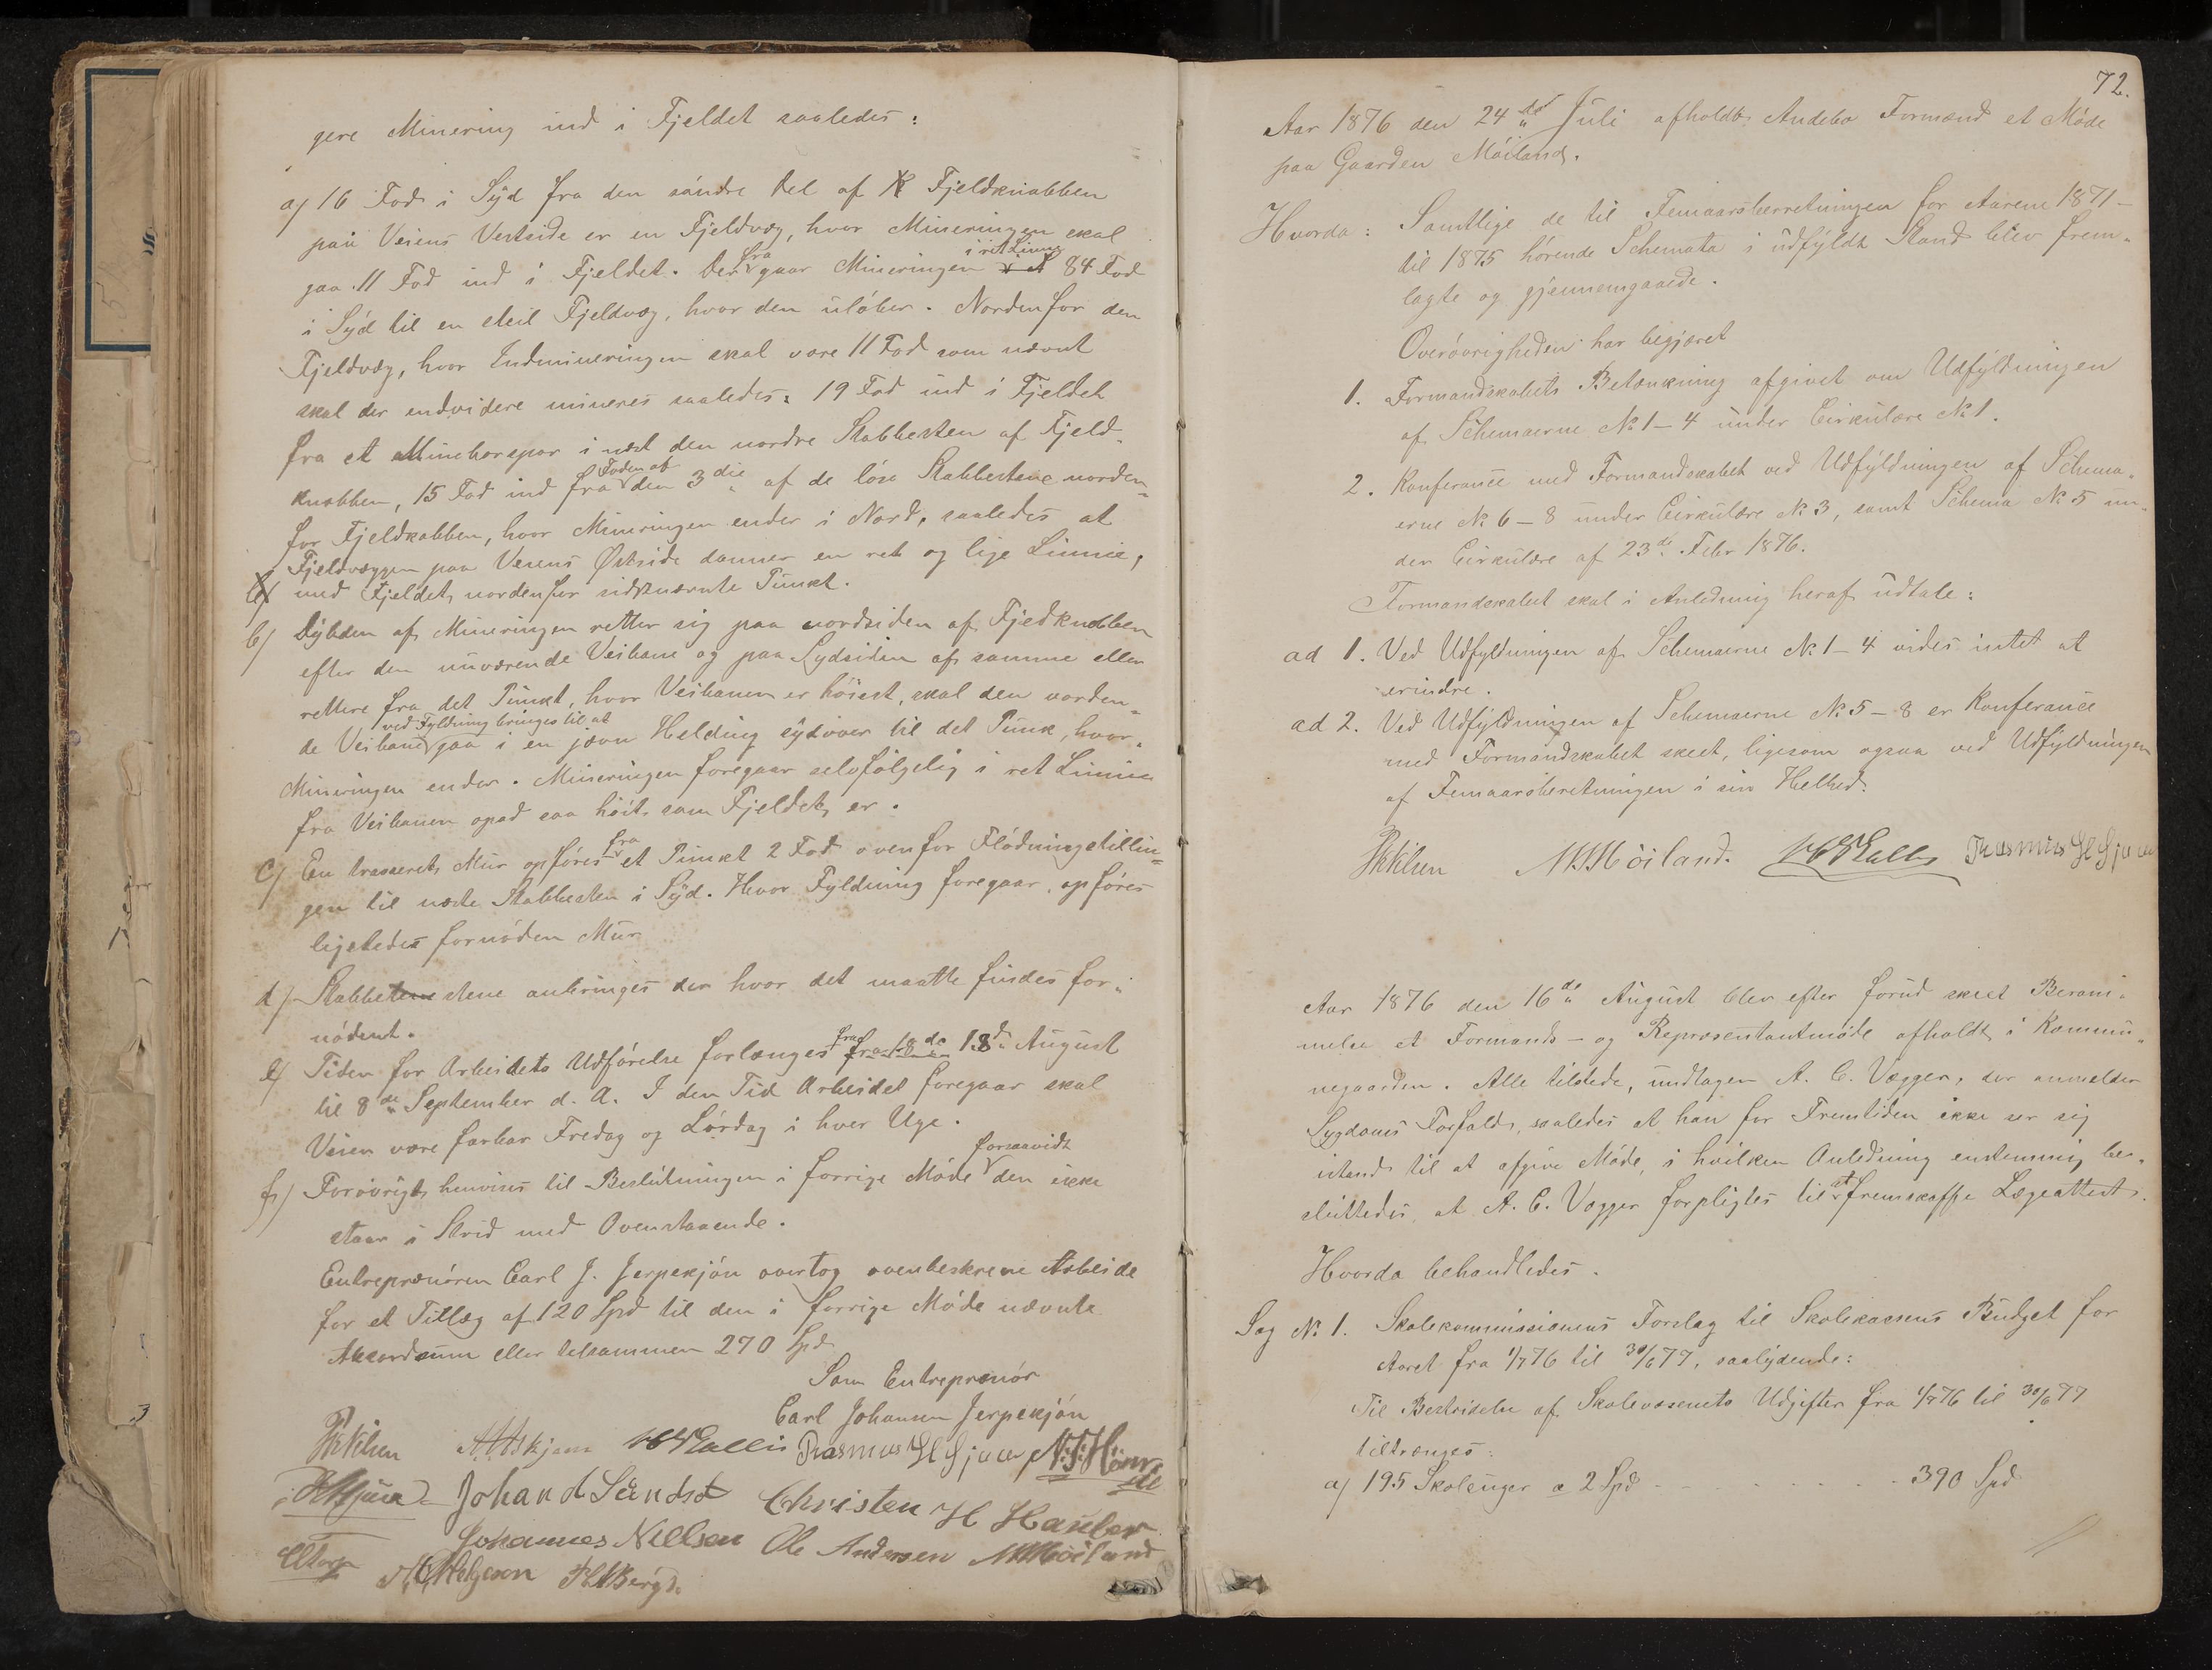 gere Minering ind i Fjeldet saaledes:
a) 16 Fod i Syd fra den söndre Del af Fjeldknabben
paa Veiens Vestside er en Fjeldvæg, hvor Mineringen skal
gaa 11 Fod ind i Fjeldet. Derfra gaar Mineringen i ret Linnie 84 Fod
i Syd til en steil Fjeldvæg, hvor den úlöber. Nordenfor den
Fjeldvæg, hvor Indmineringen skal være 11 Fod som nævnt
skal der endvidere mineres saaledes: 19 Fod ind i Fjeldet
fra et Mineborspor i næst den nordre Stabbesten af Fjeld-
knabben, 15 Fod ind fra Foden af den 3die af de löse Stabbestene norden-
for Fjeldkabben, hvor Mineringen ender i Nord, saaledes at
Fjeldvæggen paa Veiens Østside danner en ret og lige Linnie,
med Fjeldet nordenfor sidstnævnte Punkt.
b) Dybden af Mineringen retter sig paa nordsiden af Fjedknabben
efter den nuværende Veibane og paa Sydsiden af samme eller
rettere fra det Punkt, hvor Veibanen er höiest, skal den værden-
de Veibane ved Fyldning bringes til at gaa i en jævn Helding sydover til det Punk, hvor
Mineringen ender. Mineringen foregaar selvfölgelig i ret Linnie
fra Veibanen opad saa höit som Fjeldet er.
c) En trasseret Mur opföres fra et Punkt 2 Fod ovenfor Flödningstillin-
gen til næste Stabbesten i Syd. Hvor Fyldning foregaar, opföres
ligeledes fornöden Mur
d) Stabbestene anbringes der hvor det maatte findes for-
nödent.
e) Tiden for Arbeidets Udförelse forlænges fra 18de August
til 8de September d. A. I den Tid Arbeidet foregaar skal
Veien være farbar Fredag og Lördag i hver Uge.
f) Forövrigt henvises til Beslutningen i forrige Möde forsaavidt den ikke
staar i Strid med Ovenstaaende.
Entreprenören Carl J. Jerpekjön overtog ovenbeskrevne Arbeide
for et Tillæg af 120 Spd til den i forrige Möde nævnte
Akkordsum eller tilsammen 270 Spd.
Som Entreprenör
Carl Johannsen Jerpekjön
Rasmus H Gjuve
Johan d Sundst Christen H Hauber
Johannes Nielsen Ole Andersen M M Möiland
72.
Aar 1876 den 24de Juli afholdt Andebo Formænd et Möde
paa Gaarden Möiland.
Hvorda: Samtlige de til Femaarsberretningen for Aarene 1871-
til 1875 hörende Schemata i udfyldt Stand blev frem-
lagte og gjennemgaaede.
Overövrigheden har begjæret
1. Formandskabets Betænkning afgivet om Udfyldningen
af Schemaerne № 1-4 under Cirkulære № 1.
2. Konferance med Formandskabet ved Udfyldningen af Schema-
erne № 6-8 under Cirkulære № 3, samt Schema № 5 un-
der Cirkulære af 23de Febr 1876.
Formandskabet skal i Anledning heraf udtale:
ad 1. Ved Udfyldningen af Schemaerne № 1-4 vides intet at
erindre.
ad 2. Ved Udfyldningen af Schemaerne № 5-8 er Konferance
med Formandskabet skeet, ligesom ogsaa ved Udfyldningen
af Femaarsberetningen i sin Helhed.
M M Möiland. Rasmus H Gjuve
Aar 1876 den 16de August blev efter forud skeet Beram-
melse et Formands- og Repræsentantmöde afholdt i Kommu-
negaarden. Alle tilstede, undtagen A. C. Vegger, der anmelder
Sygdoms Forfald, saaledes at han for Fremtiden ikke ser sig
istand til at afgive Möde, i hvilken Anledning enstemmig be-
sluttedes, at A. C. Vegger forpligtes til at fremskaffe Lægeattest.
Hvorda behandledes.
Sag № 1. Skolekommissionens Forslag til Skolekassens Budget for
Aaret fra 1/7 76 til 30/6 77, saalydende:
Til Bestridelse af Skolevæsenets Udgifter fra 1/7 76 til 30/6 77
tiltrænges:
a) 195 Skoleuger a 2 Spd - - - - - - 390 Spd